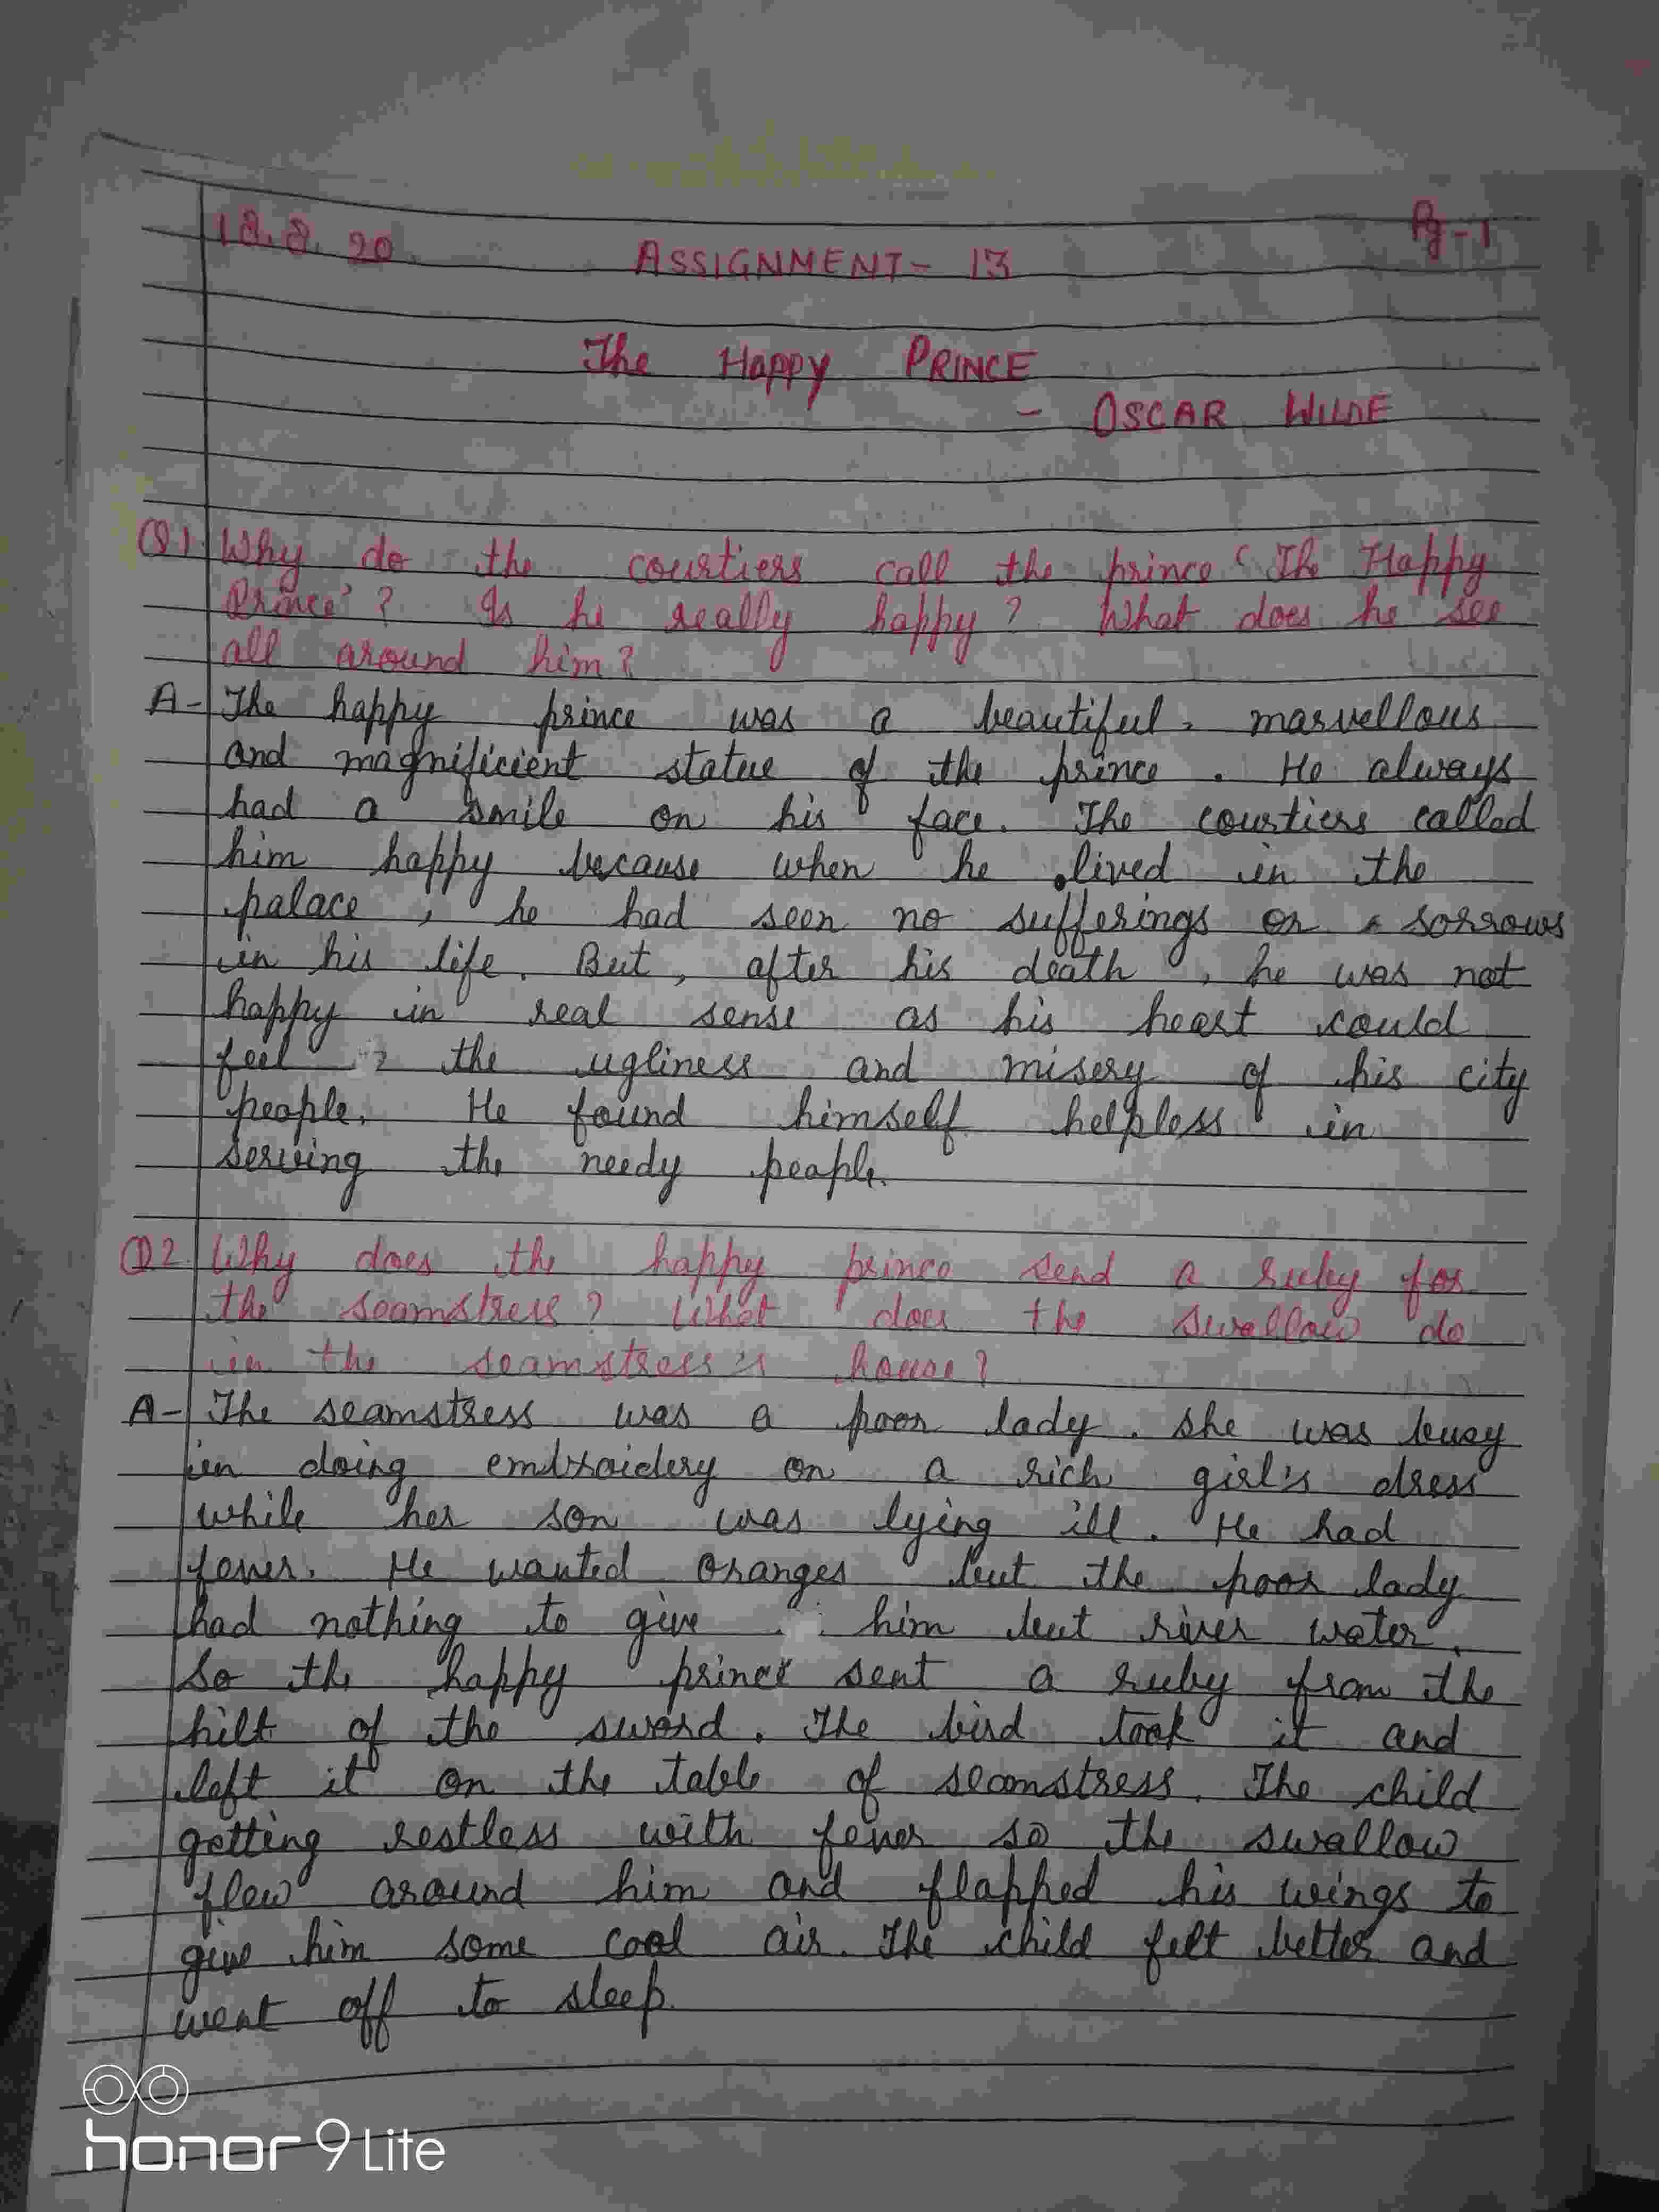 18.8.20
Pg-1
ASSIGNMENT- 13
The HAPPY PRINCE
- OSCAR WILDE
Q1 Why do the courtiers call the prince 'The Happy
Prince'? Is he really happy? What does he see
all around him?
A- The happy prince was a beautiful, marvellous
and magnificient statue of the prince. He always
had a smile on his face. The courtiers called
him happy because when he lived in the
palace, he had seen no sufferings or sorrows
in his life. But, after his death, he was not
happy in real sense as his heart could
feel the ugliness and misery of his city
people. He found himself helpless in
serving the needy people.
Q2 Why does the happy prince send a ruby for
the seamstress? What does the swallow do
in the seamstress's house?
A- The seamstress was a poor lady. she was busy
in doing embroidery on a rich girl's dress
while her son was lying ill. He had
fever. He wanted oranges but the poor lady
had nothing to give him but river water.
So the happy prince sent a ruby from the
hilt of the sword. The bird took it and
left it on the table of seamstress. The child
getting restless with fever so the swallow
flew around him and flapped his wings to
give him some cool air. The child felt better and
went off to sleep.
honor 9 Lite